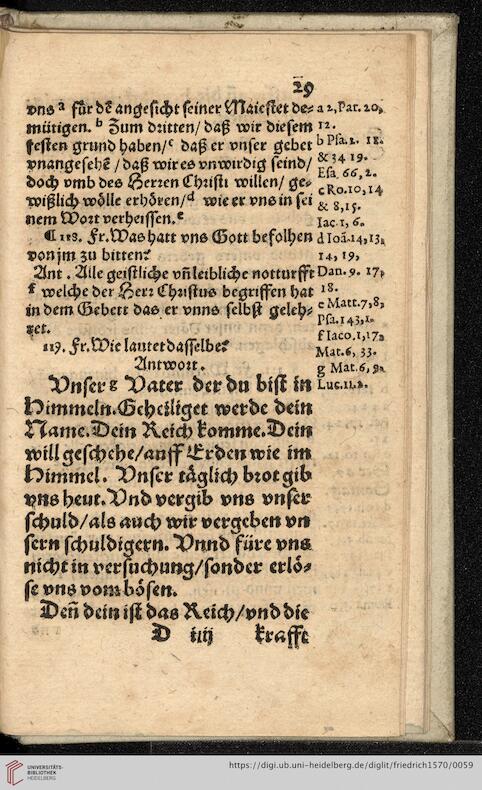 29
vns ᵃ für dẽ angesicht seiner Maiestet de-
mütigen. ᵇ Zum dritten/ daß wir diesem
festen grund haben/ᶜ daß er vnser gebet
vnangesehẽ /daß wir es vnwirdig seind/
doch vmb des Herren Christi willen/ ge-
wißlich wölle erhören/ᵈ wie er vns in sei
nem Wort verheissen.ᵉ
¶ 118. Fr. Was hatt vns Gott befolhen
von jm zu bitten?
Ant. Alle geistliche vñ leibliche notturfft
ᶠ welche der Herr Christus begriffen hat
in dem Gebett das er vnns selbst geleh-
ret.
119. Fr. Wie lautet dasselbe?
Antwort.
Vnser ᵍ Vater der du bist in
Himmeln. Geheiliget werde dein
Name. Dein Reich komme. Dein
will geschehe/auff Erden wie im
Himmel. Vnser täglich brot gib
vns heut. Vnd vergib vns vnser
schuld/als auch wir vergeben vn
sern schuldigern. Vnnd füre vns
nicht in versuchung/sonder erlö-
se vns vom bösen.
Deñ dein ist das Reich/vnd die
D iiij krafft
a 2, Par. 20,
12.
b Psa. 2. 11.
& 34 19.
Esa. 66, 2.
c Ro. 10, 14
& 8, 15.
Iac. 1, 6.
d Ioã. 14, 13,
14, 19,
Dan. 9. 17,
18.
e Matt. 7, 8,
Psa. 143, 1.
f Iaco. 1, 17,
Mat. 6, 33.
g Mat. 6, 9.
Luc. 11. 2.
UNIVERSITÄTS-
BIBLIOTHEK
HEIDELBERG
https://digi.ub.uni-heidelberg.de/diglit/friedrich1570/0059